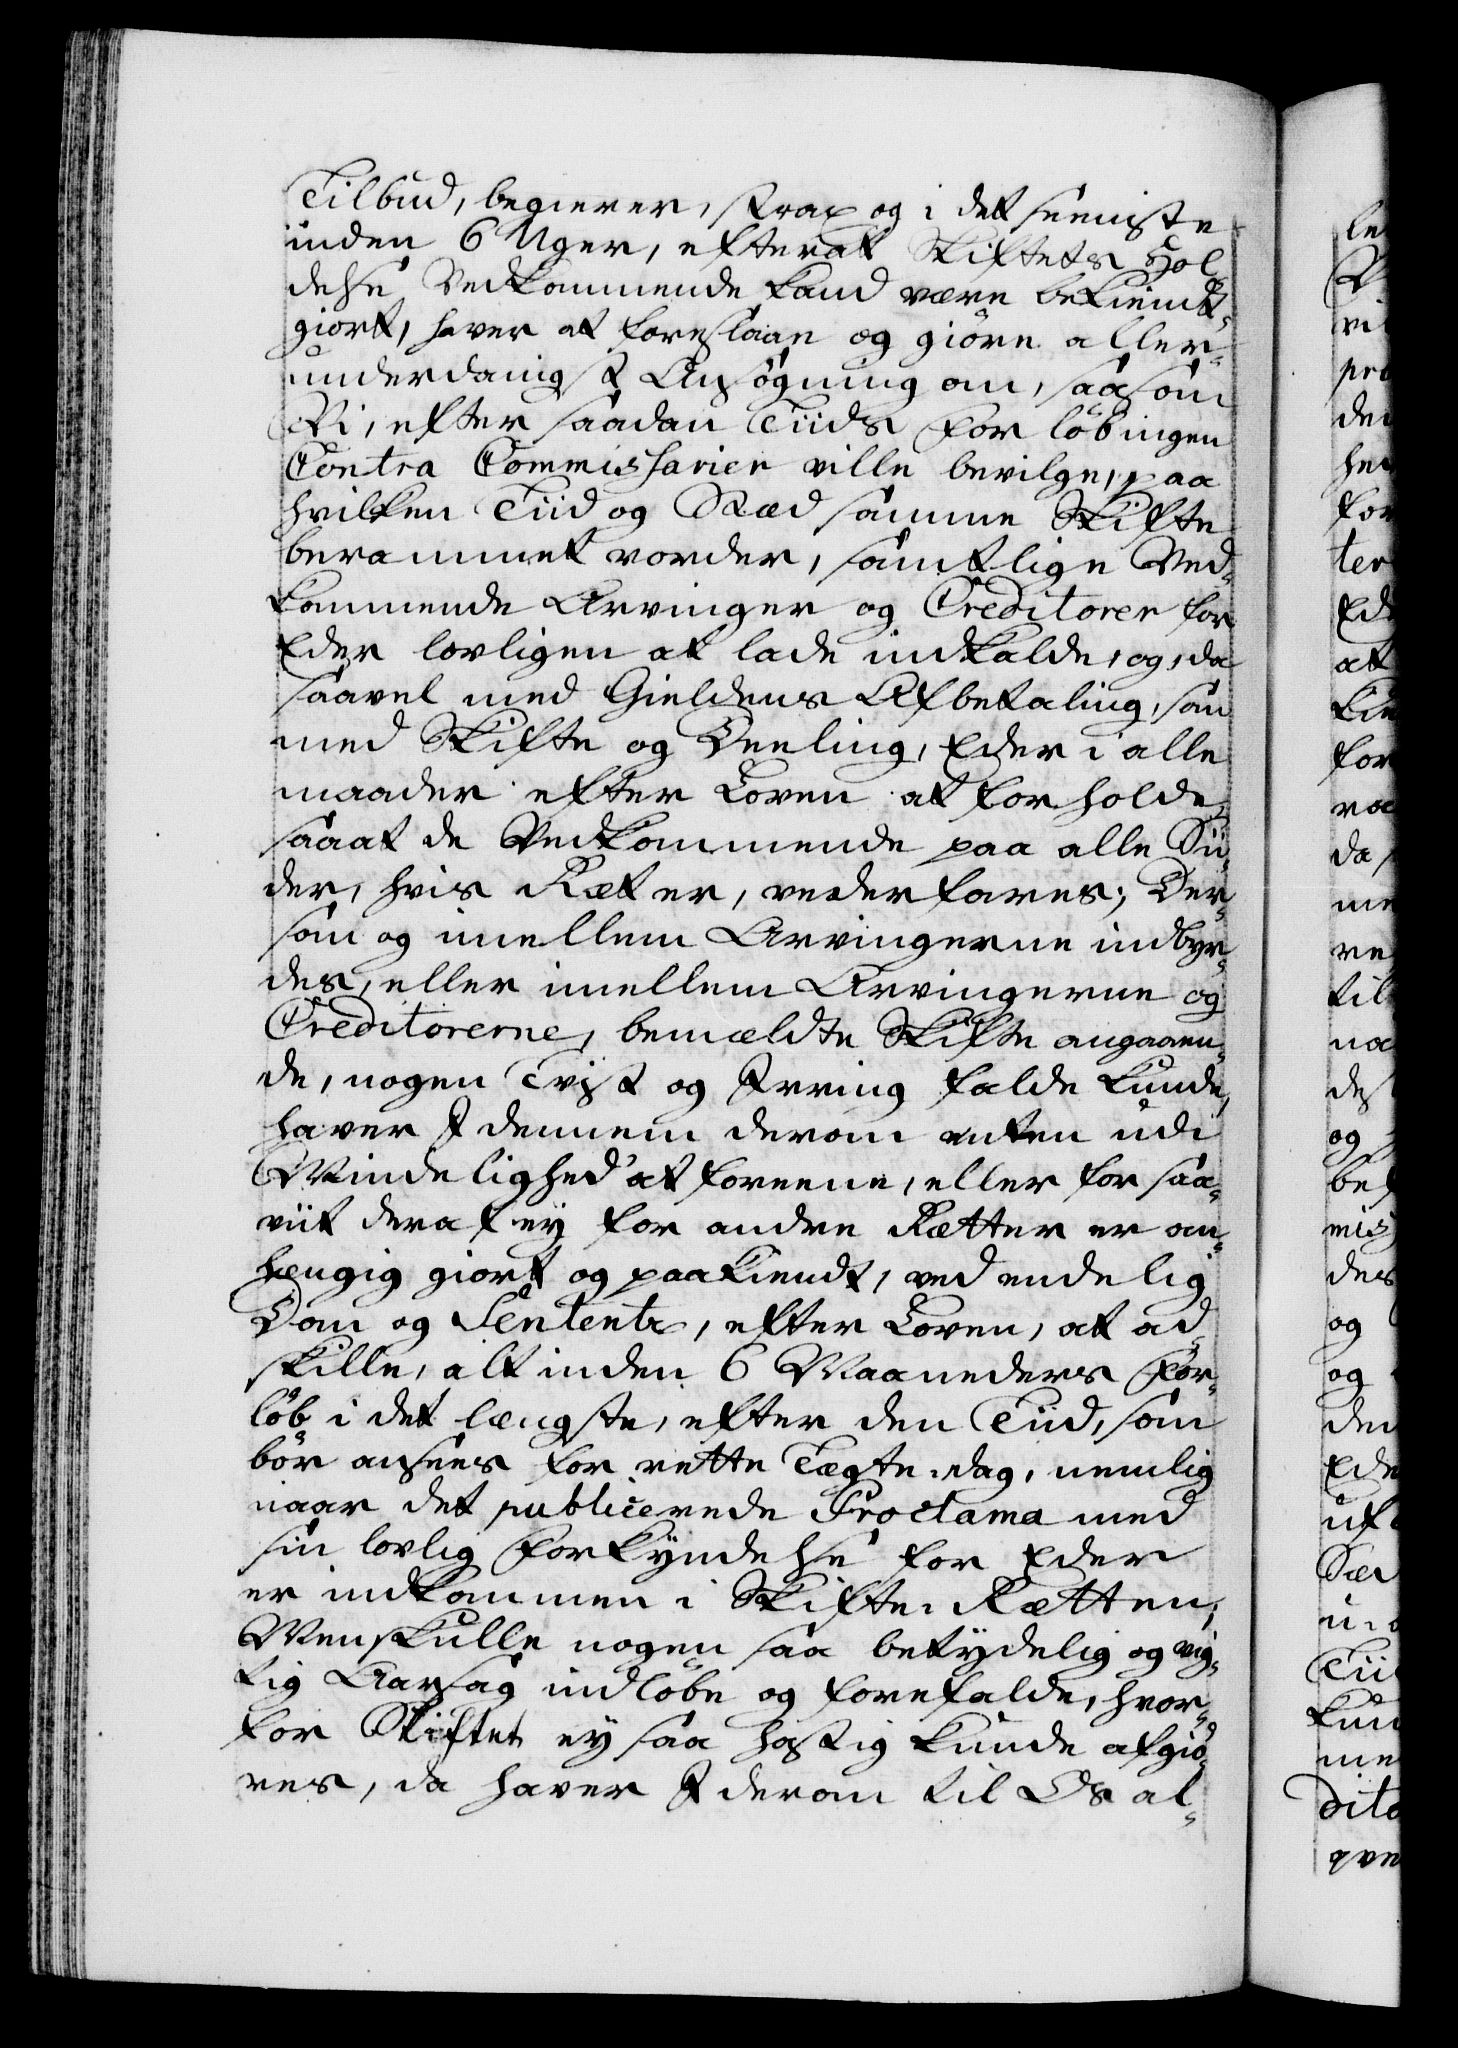 Tilbud, begierer, strax og i det seeniste
inden 6 Uger, efterat Skiftets Hol-
delse Vedkommende kand være bekiendt-
giort, haver at foreslaae og giøre aller-
underdanigst Ansøgning om, saasom
Vi, efter saadan Tiids Forløbingen
Contra Commissarier ville bevilge, paa
hvilken Tiid og Stæd samme Skifte
berammet vorder, samtlige Ved-
kommende Arvinger og Creditorer for
Eder lovligen at lade indkalde, og, da
saavel med Gieldens Afbetaling, som
med Skifte og Deeling, Eder i alle
maader efter Loven at forholde,
saaat de Vedkommende paa alle Sii-
der, hvis Ræt er, vederfares; Der-
som og imellem Arvingerne indbyr-
des, eller imellem Arvingerne og
Creditorerne, bemældte Skifte angaaen-
de, nogen Tvist og Irring falde kunde,
haver I dennem derom enten udi
Mindelighed at foreene, eller for saa-
viit deraf ey for andre Rætter er an-
hængig giort og paakiendt, ved endelig
Dom og Sententz, efter Loven, at ad-
skille, alt inden 6 Maaneders For-
løb i det længste, efter den Tiid, som
bør ansees for rette Tægte-dag, nemlig
naar det publicerede Proclama med
sin lovlig Forkyndelse for Eder
er indkommen i Skifte-Rætten;
Men skulle nogen saa betydelig og vig-
tig Aarsag indløbe og forefalde, hvor-
for Skiftet ey saa hastig kunde afgiø-
res, da haver I derom til Os al-